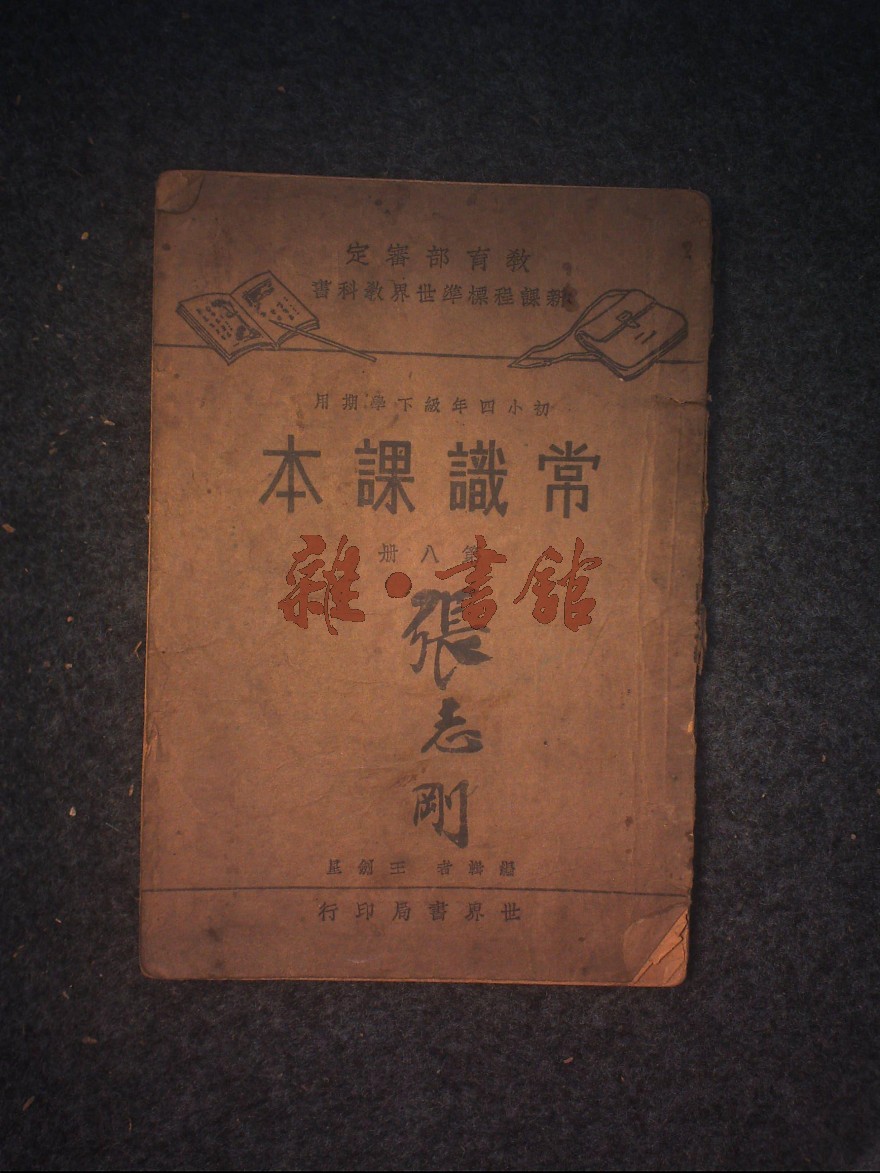 教育部審定
新課程標準世界教科書
初小四年級下學期用
常識課本
第八册
雜·書館
張志剛
編輯者 王劍星
世界書局印行